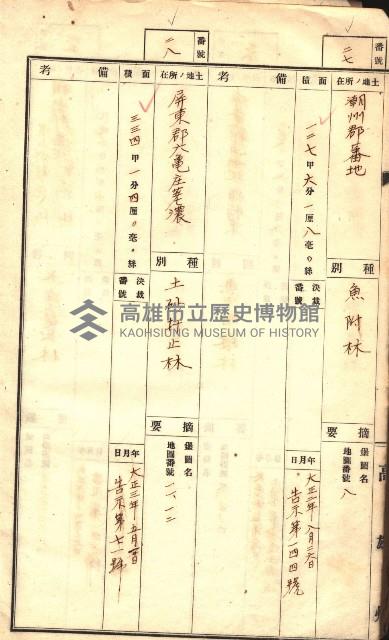 番號
二七
土地ノ所在
潮州郡蕃地
種別
魚附林
摘要
堡圖名
地圖番號 八
面積
一二七甲六分一厘八毫〇絲
決裁番號
年月日
大正三年八月二六日
告示第一四四號
備考
番號
二八
土地ノ所在
屏東郡六龜庄荖濃
種別
土砂扞止林
摘要
堡圖名
地圖番號 一、一二
面積
三三四甲一分四厘〇毫〇絲
決裁番號
年月日
大正三年五月
告示第七一號
備考
高雄州
高雄市立歷史博物館
KAOHSIUNG MUSEUM OF HISTORY